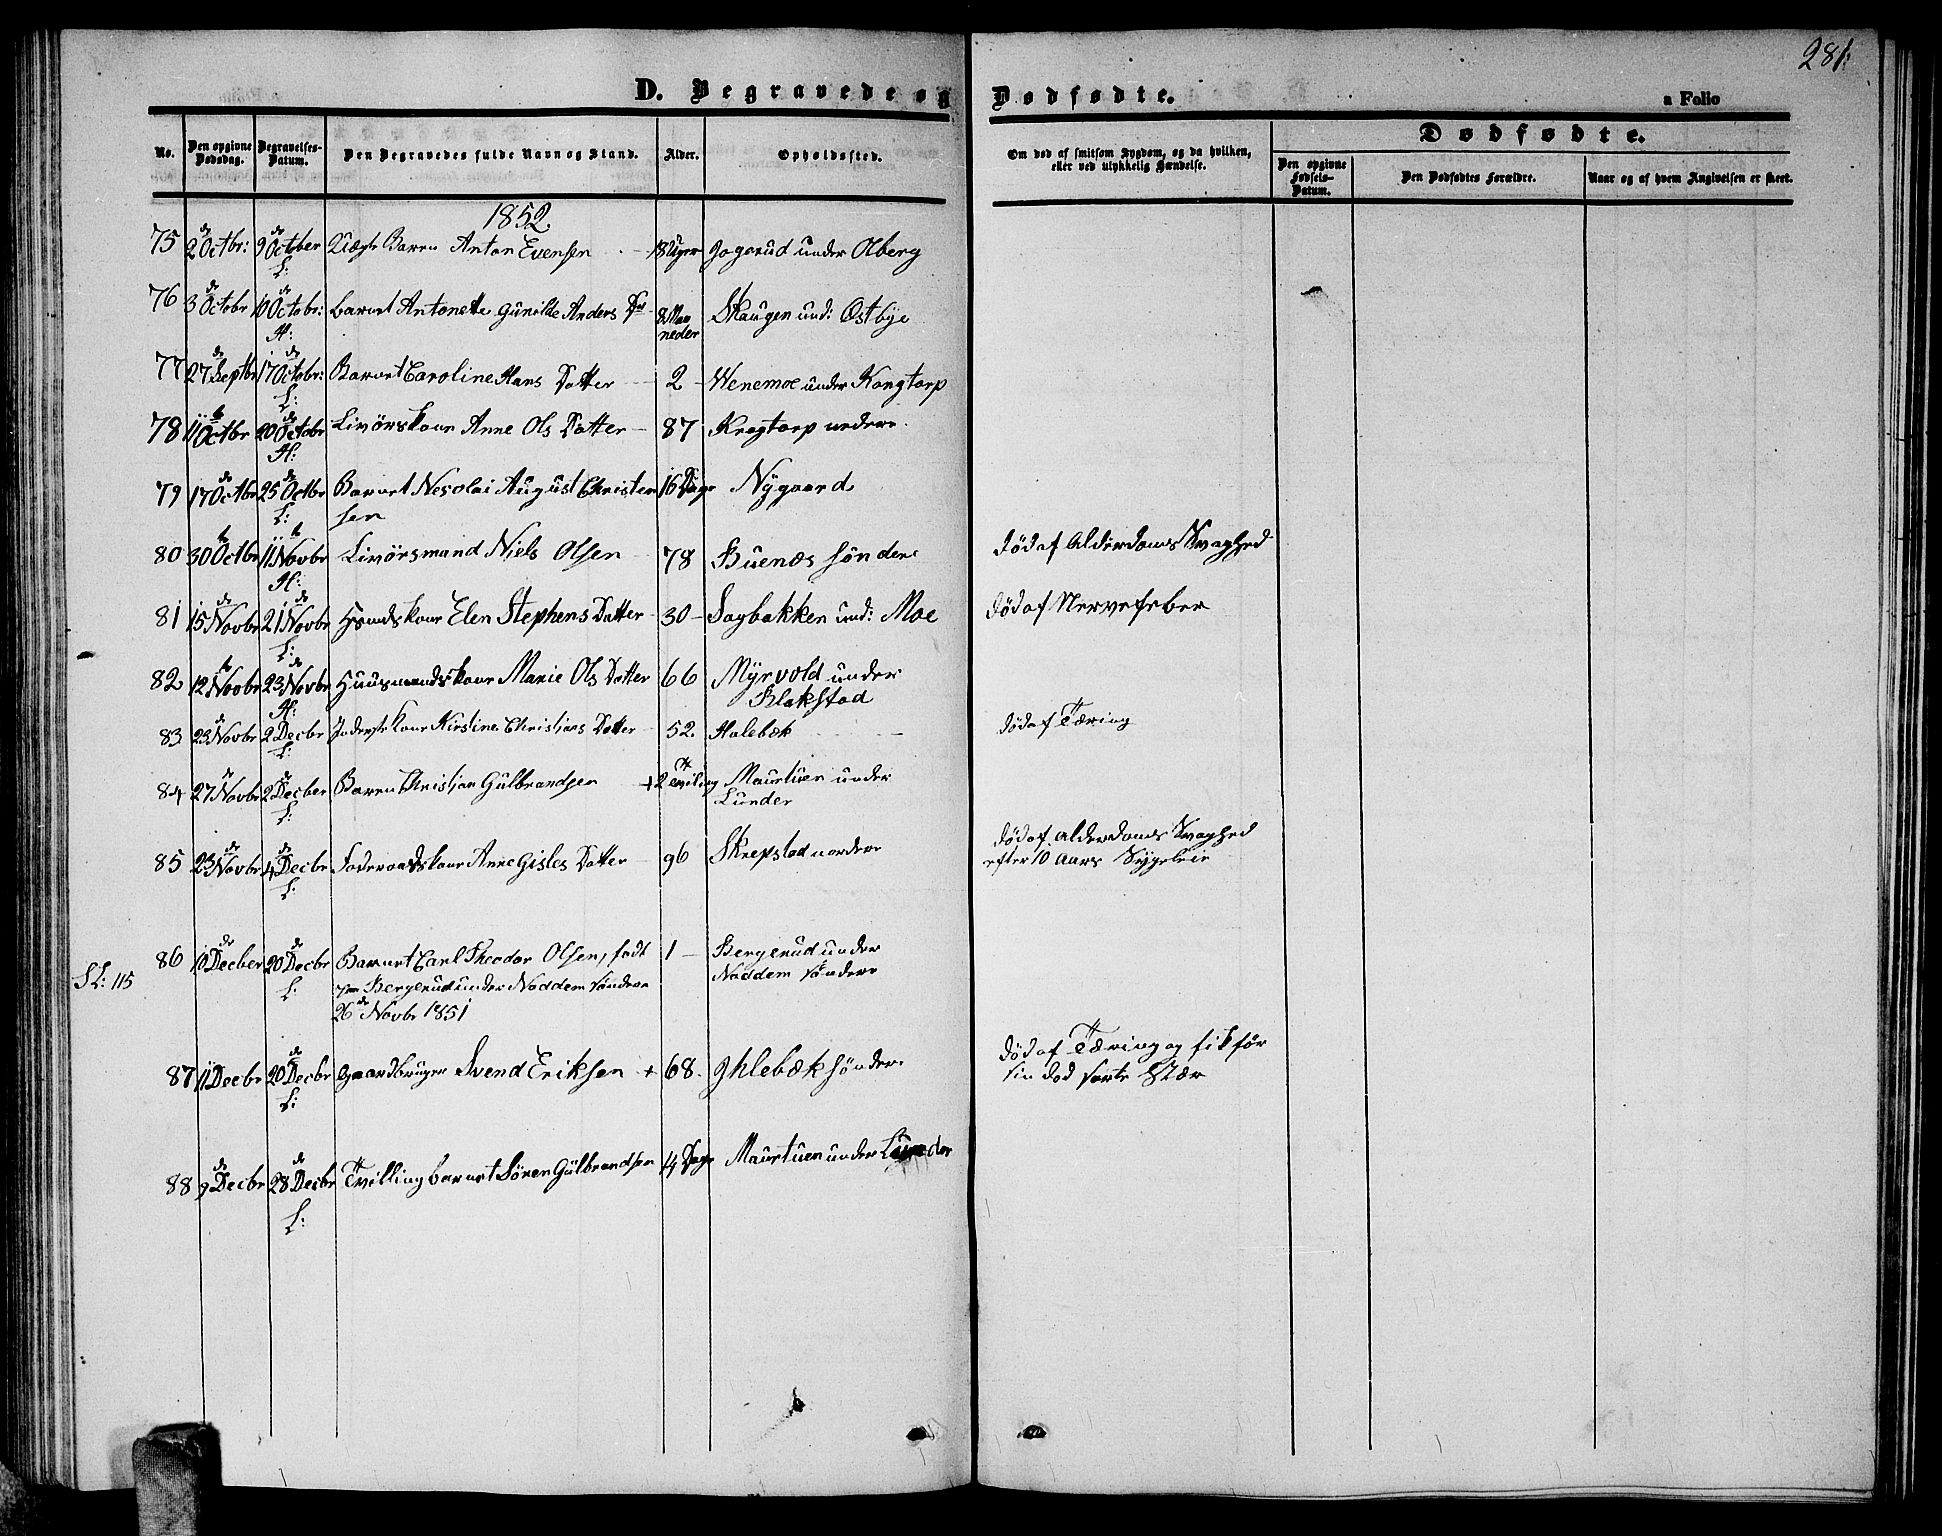 281.
D. Begravede og Dødfødte.
a Folio
No.
Den opgivne Dødsdag.
Begravelses-Datum.
Den Begravedes fulde Navn og Stand.
Alder.
Opholdssted.
Om død af smitsom Sygdom, og da hvilken, eller ved ulykkelig Hændelse.
Dødfødte.
Den opgivne Fødsels-Datum.
Den Dødfødtes Forældre.
Naar og af hvem Angivelsen er skeet.
1852
75 2 de Octbr: 9 de October Barn Anton Evensen 18 Uger under Olberg
L:
76 3 de Octobr 10 de Octobr: barnet Antonette Gunilde Anders Dtr 8 Maa Skaugen und: Østbye
H: neder
77 27 de Septbr 17 de Octobr: Barnet Caroline Hans Datter 2 Wenemoe under Kongtorp
L:
78 11 te Octbr 20 de Octobr Livørskone Anne Ols Datter 87 Krogtorp nedere
H:
79 17 de Octbr 25 de Octbr Barnet Nicolai August Christen 16 Dage Nygaard
L: sen
80 30 te Octbr 11 te Novbr Livørsmand Niels Olsen 78 Buenæs søndere død af Alderdoms Svaghed
H:
81 15 de Novbr 21 de Novbr Huusmdskone Elen Stephens Datter 30 Sagbakken und: Moe død af Nervefeber
L:
82 12 te Novbr 23 de Novbr Huusmandskone Marie Ols Datter 66 Myrvold under
H: Blakstad
83 23 de Novbr 2 Decbr Inderstkone Kirstine Christians Datter 52. Holebæk død af Tæring
L:
84 27 de Novbr 2 de Decber Barn Christian Gulbrandsen + 2 Tvilling Maurtuen under
L: Lunder
85 23 de Novbr 4 de Decbr Foderaadskone Anne Gisles Datter 96 Skrepstad nordere død af Alderdoms Svaghed
L: efter 10 Aars Sygeleie
86 10 de Decber 20 de Decbr Barnet Carl Theodor Olsen, født 1 Bergerud under
SL: 115
L: Bergerud under Noddem søndere Noddem søndere
26 de Novbr 1851
87 11 Decbr 20 de Decbr Gaardbruger Svend Eriksen + 68. Ihlebæk søndere død af Tæring og fik før
L: sin død sorte Stær
88 9 de Decbr 28 de Decbr Tvillingbarnet Søren Gulbrandsen 4 Dage Maurtuen under Lunder
L: